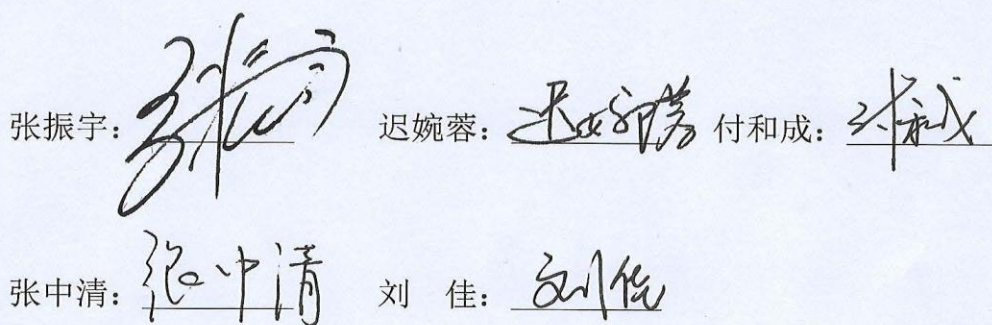 张振宇：张振宇 迟婉蓉：迟婉蓉 付和成：付和成
张中清：张中清 刘 佳：刘佳